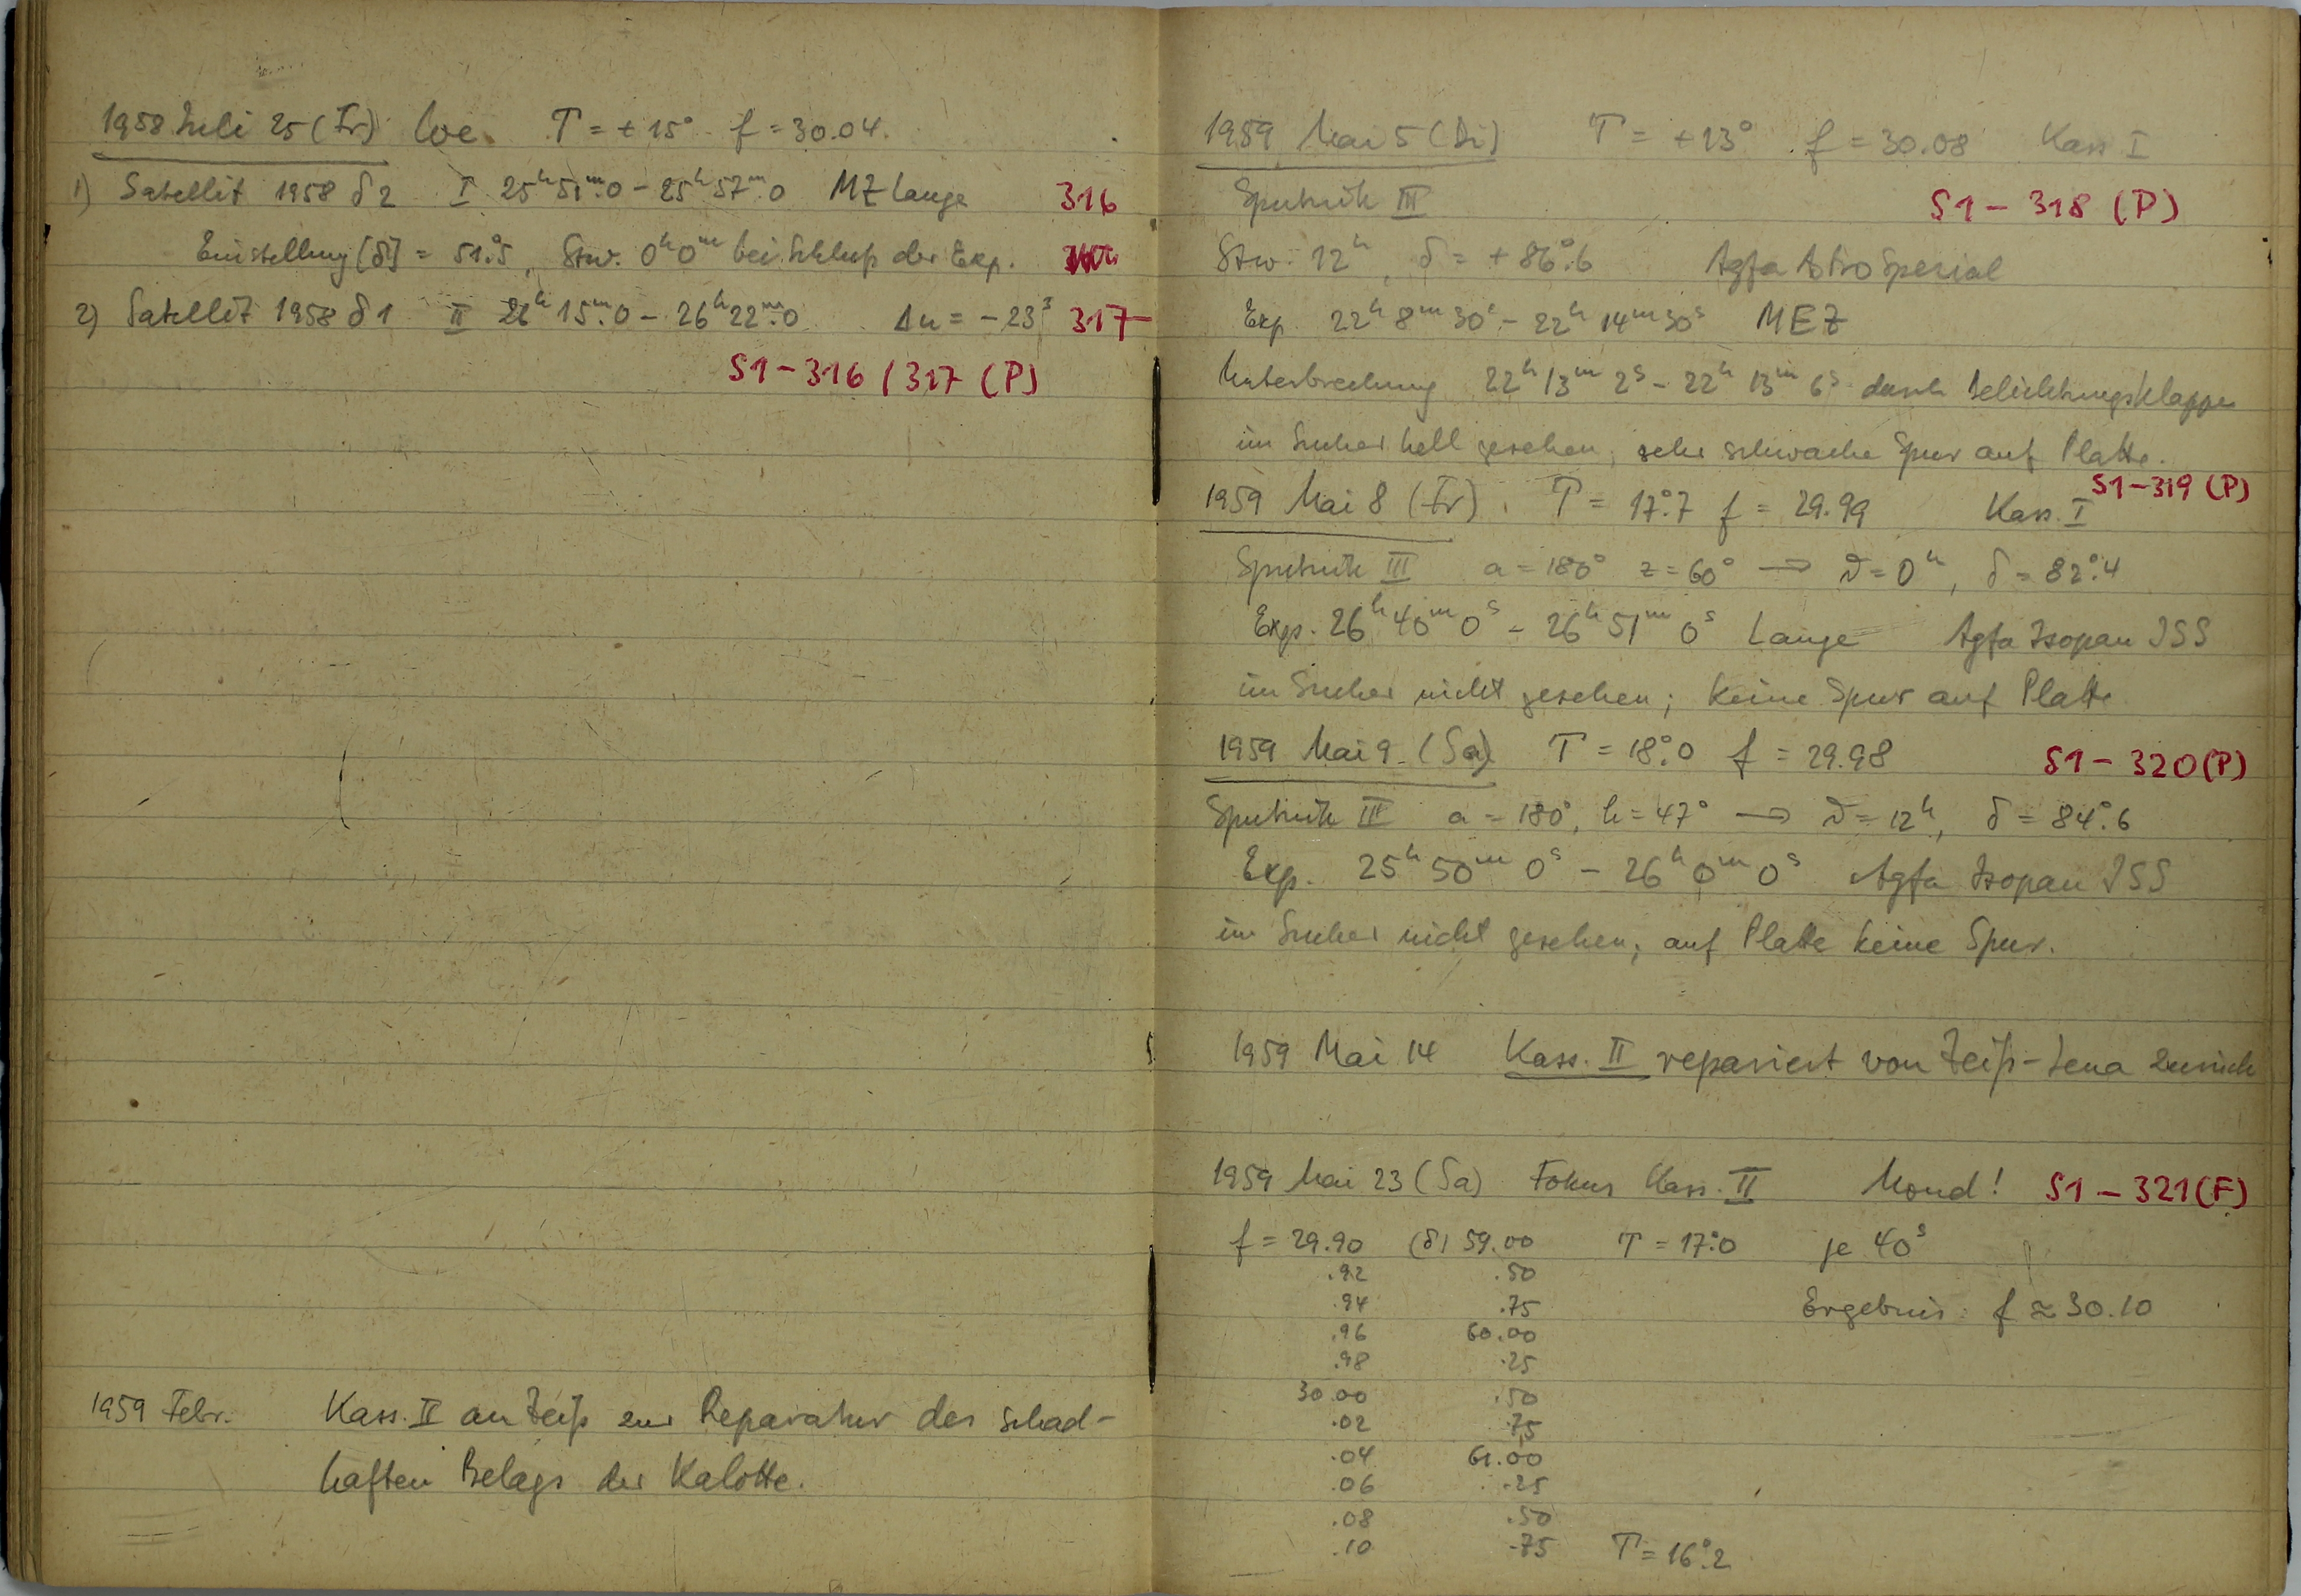 1958 Juli 25 (Fr) Loe. T = +15° f = 30.04.
1) Satellit 1958 δ2 I 25ʰ51ᵐ.0 – 25ʰ57ᵐ.0 MZ Lange 316
Einstellung [δ] = 51°.5, Stw. 0ʰ0ᵐ bei Schluß der Exp.
2) Satellit 1958 δ1 II 26ʰ15ᵐ.0 – 26ʰ22ᵐ.0 Δu = –23ˢ 317
S1–316/317 (P)
1959 Febr. Kass. II an Zeiß zur Reparatur des schad-
haften Belags der Kalotte.
1959 Mai 5 (Di) T = +13° f = 30.08 Kass I
Sputnik III S1 – 318 (P)
Stw. 12ʰ, δ = +86°.6 Agfa Astro Spezial
Exp. 22ʰ 8ᵐ 30ˢ – 22ʰ 14ᵐ 30ˢ MEZ
Unterbrechung 22ʰ 13ᵐ 2ˢ – 22ʰ 13ᵐ 6ˢ durch Belichtungsklappe
im Sucher hell gesehen, sehr schwache Spur auf Platte.
S1–319 (P)
1959 Mai 8 (Fr). T = 17°.7 f = 29.99 Kass. I
Sputnik III a = 180° z = 60° → ϑ = 0ʰ, δ = 82°.4
Exp. 26ʰ 40ᵐ 0ˢ – 26ʰ 51ᵐ 0ˢ Lange Agfa Isopan ISS
im Sucher nicht gesehen; keine Spur auf Platte
1959 Mai 9. (Sa) T = 18°.0 f = 29.98 S1 – 320 (P)
Sputnik III a = 180°, h = 47° → ϑ = 12ʰ, δ = 84°.6
Exp. 25ʰ 50ᵐ 0ˢ – 26ʰ 0ᵐ 0ˢ Agfa Isopan ISS
im Sucher nicht gesehen; auf Platte keine Spur.
1959 Mai 14 Kass. II repariert von Zeiß-Jena zurück
1959 Mai 23 (Sa) Fokus Kass. II Mond! S1 – 321 (F)
f = 29.90 (δ) 59.00 T = 17°.0 je 40ˢ
.92 .50
.94 .75 Ergebnis: f ≈ 30.10
.96 60.00
.98 .25
30.00 .50
.02 .75
.04 61.00
.06 .25
.08 .50
.10 .75 T = 16°.2